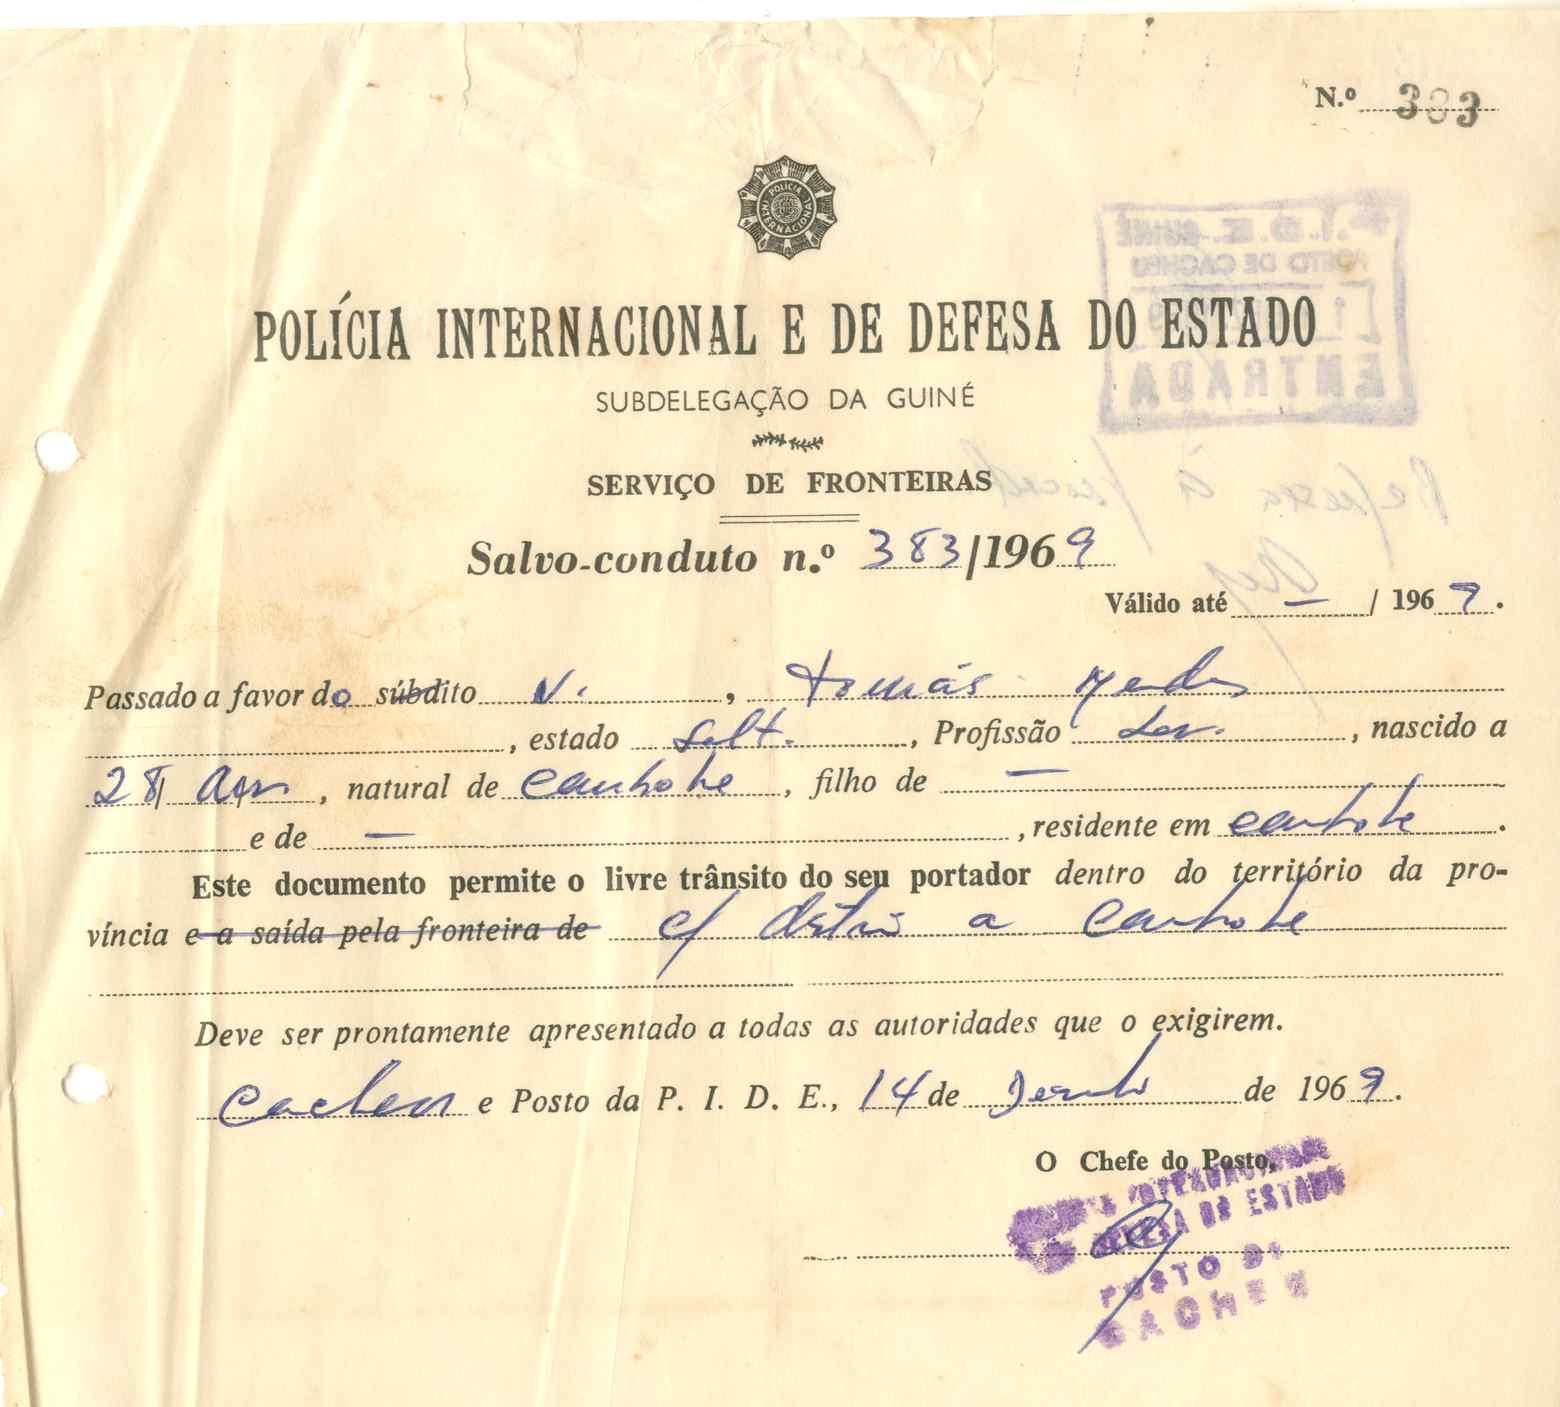 N.º 383
POLÍCIA INTERNACIONAL
POLÍCIA INTERNACIONAL E DE DEFESA DO ESTADO
SUBDELEGAÇÃO DA GUINÉ
SERVIÇO DE FRONTEIRAS
Salvo-conduto n.º 383/1969
Válido até — / 1969.
Passado a favor do súbdito N. , Tomás Mendes
, estado Solt. , Profissão Lav. , nascido a
28 anos , natural de Canhobe , filho de —
e de — , residente em Canhobe .
Este documento permite o livre trânsito do seu portador dentro do território da pro-
víncia e a saída pela fronteira de c/ destino a Canhobe
Deve ser prontamente apresentado a todas as autoridades que o exigirem.
Cacheu e Posto da P. I. D. E., 14 de de 1969.
O Chefe do Posto,
INTERNACIONAL
DEFESA DO ESTADO
POSTO DE
CACHEU
P.I.D.E. GUINÉ
POSTO DE CACHEU
ENTRADA